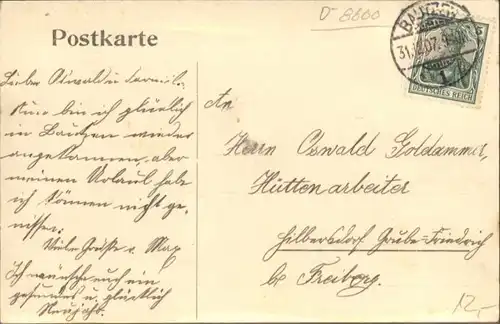 D-8600
Postkarte
BAUTZEN
31.12.07.
1
DEUTSCHES REICH
Lieber Oswald u. Familie.
Nun bin ich glücklich
in Bautzen wieder
angekommen, aber
meinen Urlaub habe
ich können nicht ge-
nissen.
Viele Grüße v. Max
Ich wünsche euch ein
gesundes u. glücklich
Neujahr.
An
Herrn Oswald Goldammer,
Hüttenarbeiter
Hilbersdorf Grube-Friedrich
b/ Freiberg.
12,-